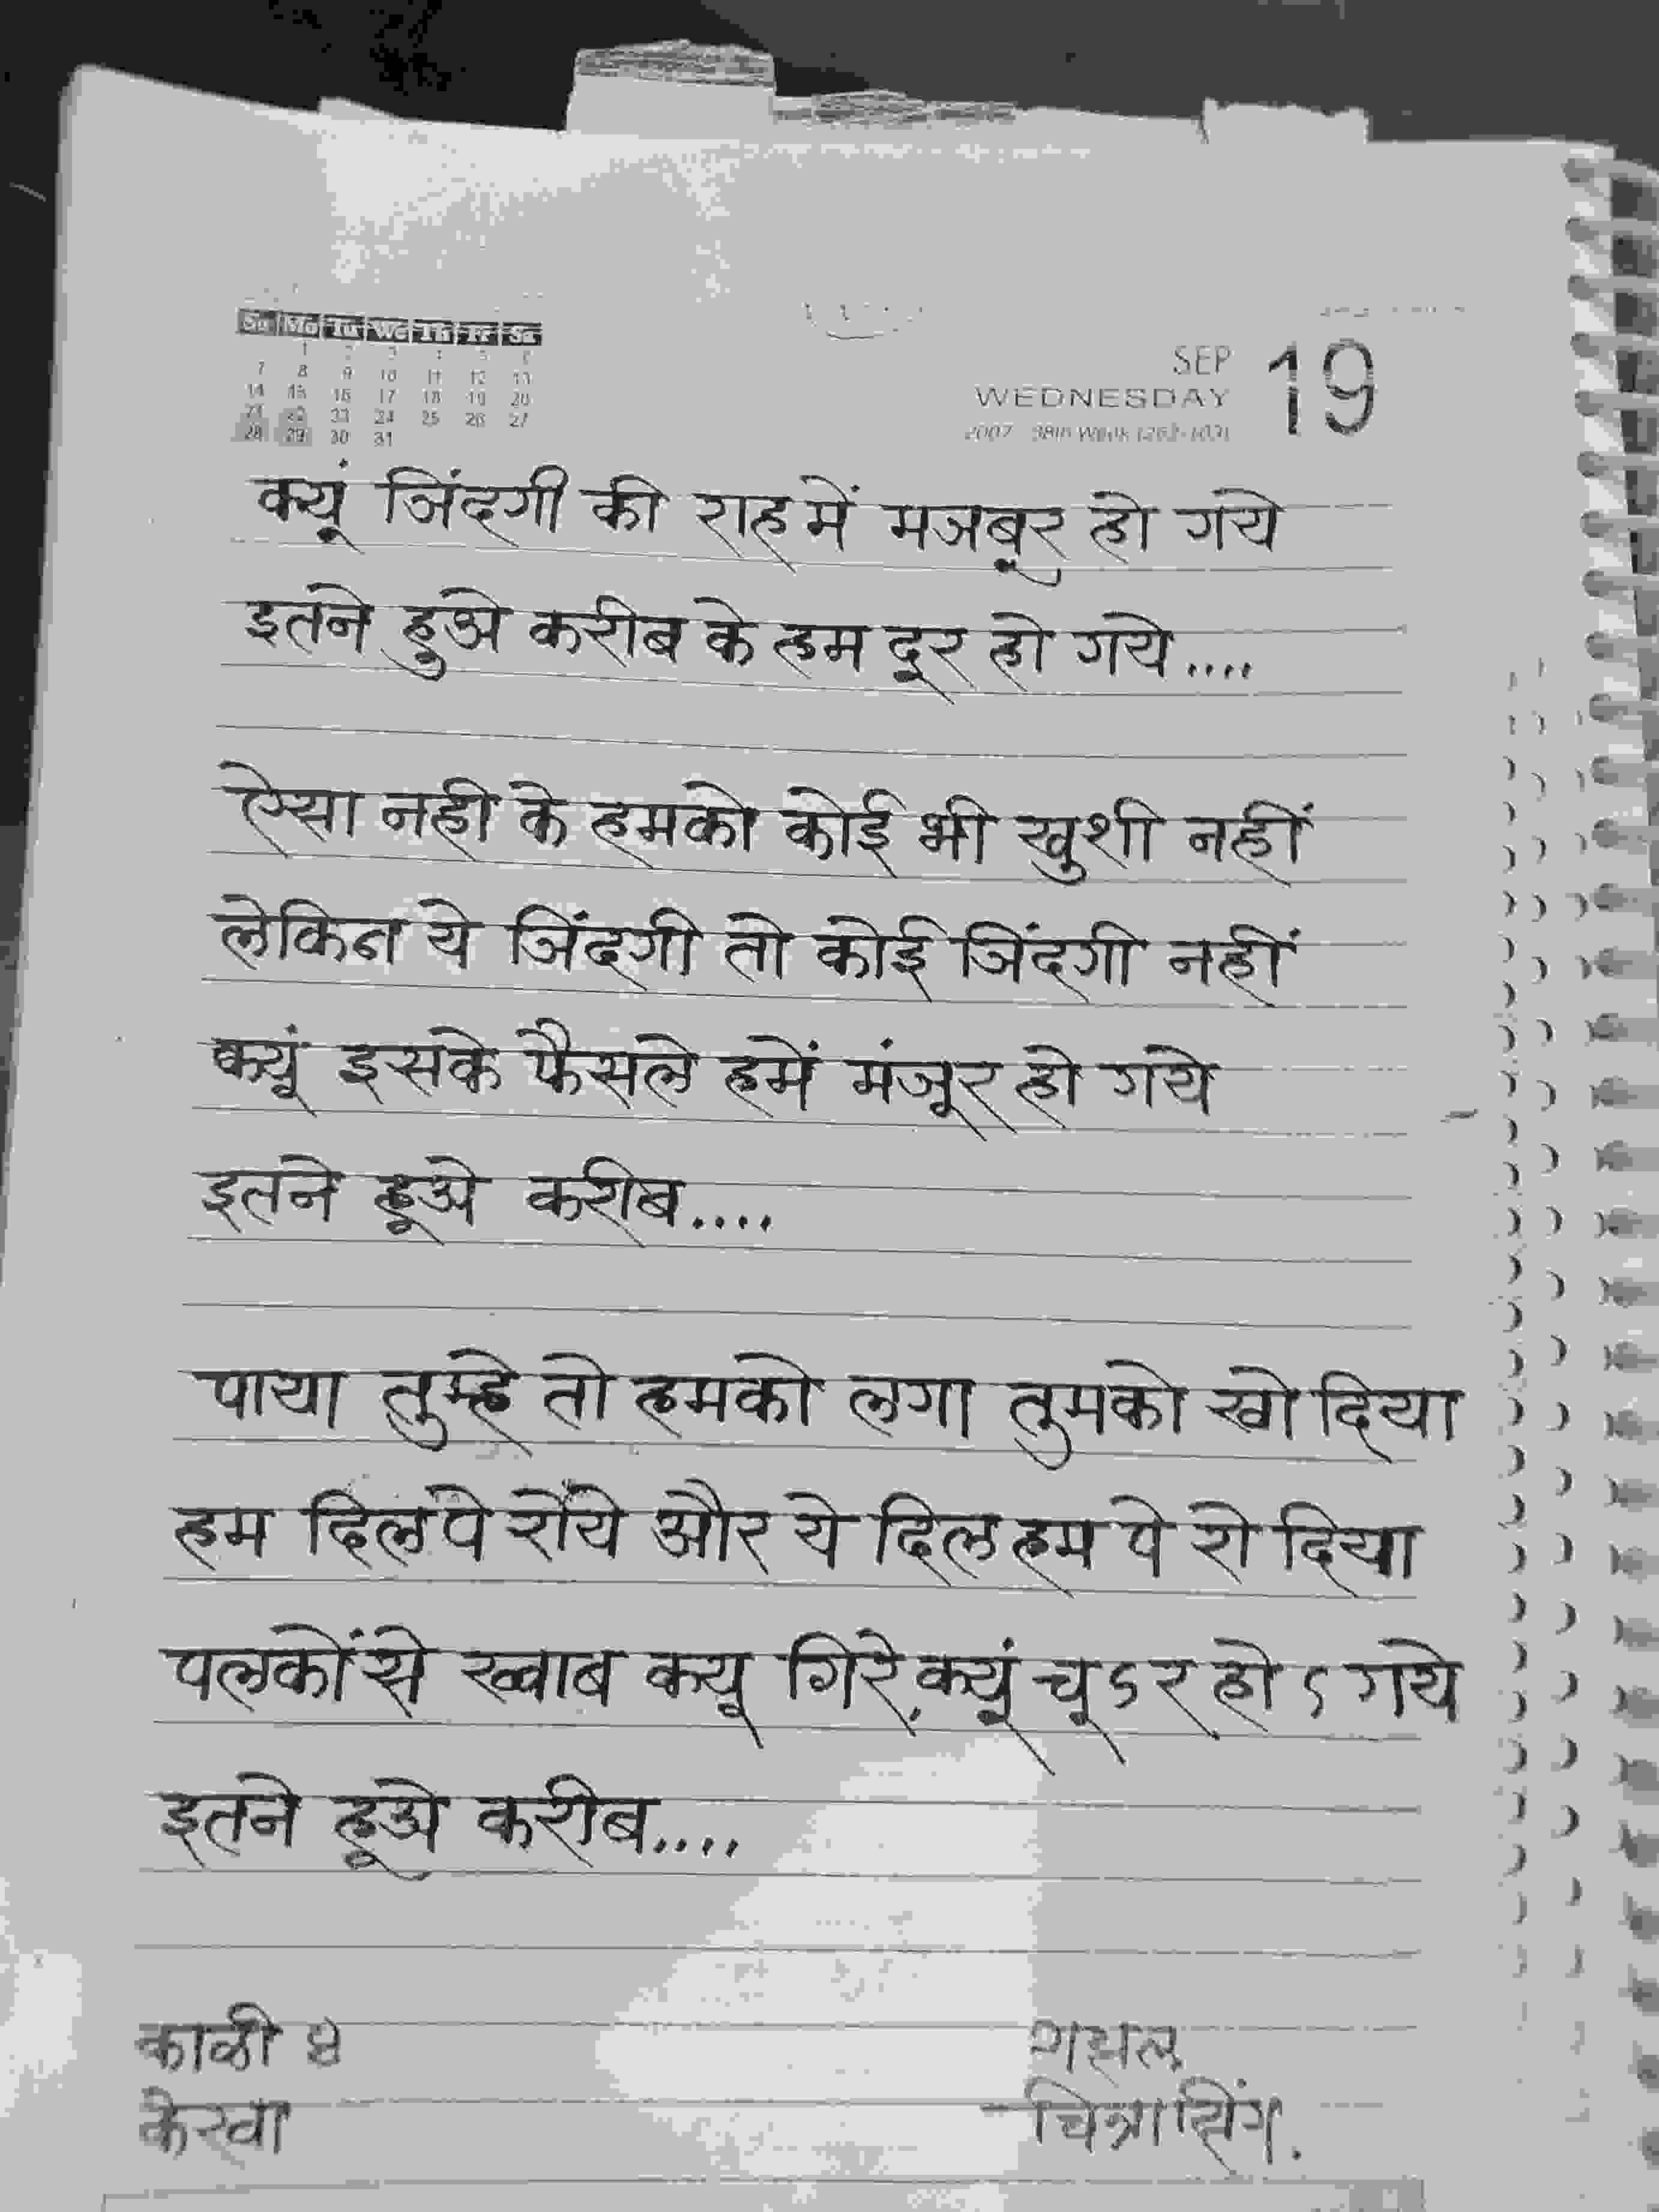 Su Mo Tu We Th Fr Sa
1 2 3 4 5 6
7 8 9 10 11 12 13
14 15 16 17 18 19 20
21 22 23 24 25 26 27
28 29 30 31
SEP 19
WEDNESDAY
2007 38th Week
क्यूं जिंदगी की राह में मजबूर हो गये
इतने हुअे करीब के हम दूर हो गये....
ऐसा नही के हमको कोई भी खुशी नहीं
लेकिन ये जिंदगी तो कोई जिंदगी नहीं
क्यूं इसके फैसले हमें मंजूर हो गये
इतने हूअे करीब....
पाया तुम्हे तो हमको लगा तुमको खो दिया
हम दिल पे रोये और ये दिल हम पे रो दिया
पलकों से ख्वाब क्यू गिरे, क्यूं चू ऽ र हो ऽ गये
इतने हूअे करीब....
काळी ४ गझल
केरवा चित्रा सिंग.